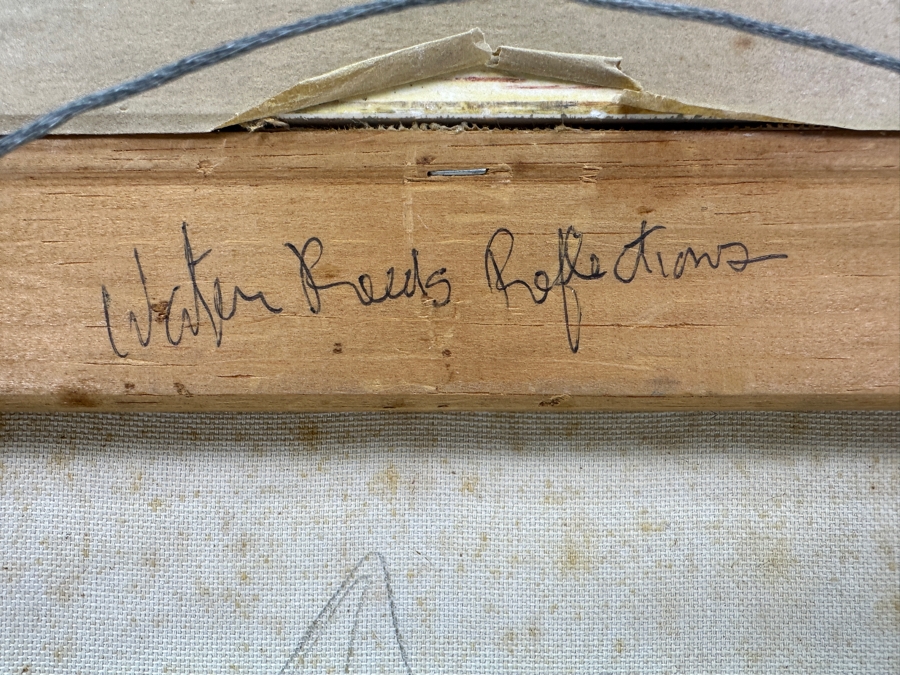 Water Reeds Reflections